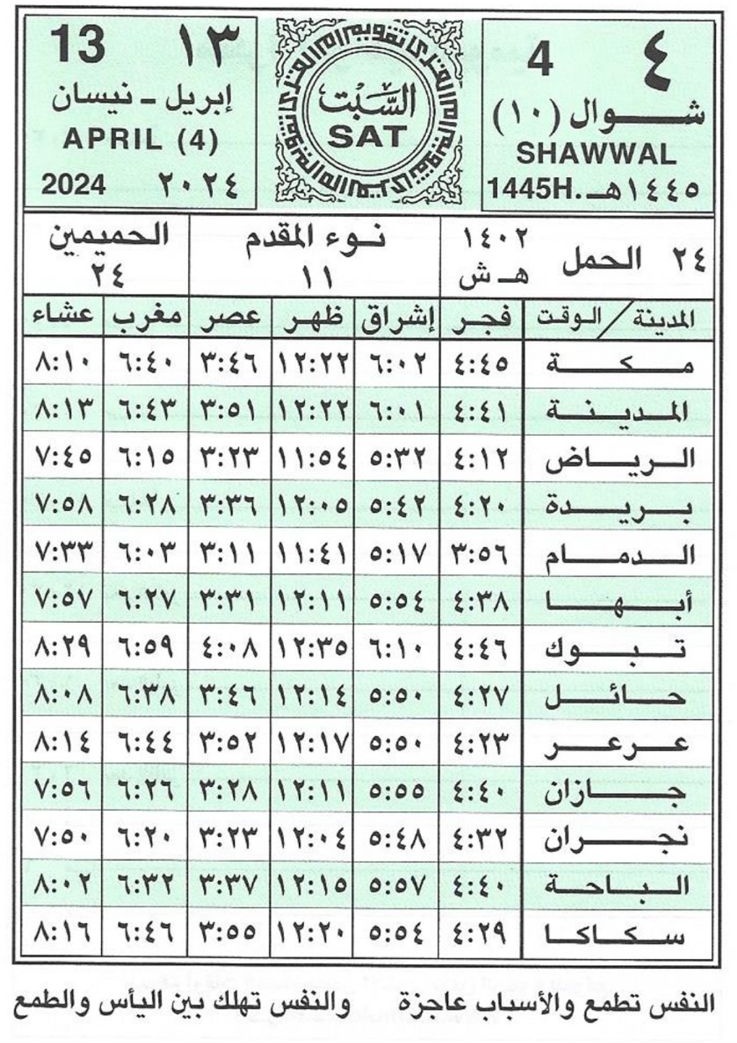 ٤ 4
شوال (١٠)
SHAWWAL
1445H. ١٤٤٥هـ
تقويم أم القرى تقويم أم القرى تقويم أم القرى
السبت
SAT
١٣ 13
إبريل - نيسان
APRIL (4)
2024 ٢٠٢٤
٢٤ الحمل ١٤٠٢ هـ ش
نوء المقدم ١١
الحميمين ٢٤
المدينة / الوقت فجر إشراق ظهر عصر مغرب عشاء
مكة ٤:٤٥ ٦:٠٢ ١٢:٢٢ ٣:٤٦ ٦:٤٠ ٨:١٠
المدينة ٤:٤١ ٦:٠١ ١٢:٢٢ ٣:٥١ ٦:٤٣ ٨:١٣
الرياض ٤:١٢ ٥:٣٢ ١١:٥٤ ٣:٢٣ ٦:١٥ ٧:٤٥
بريدة ٤:٢٠ ٥:٤٢ ١٢:٠٥ ٣:٣٦ ٦:٢٨ ٧:٥٨
الدمام ٣:٥٦ ٥:١٧ ١١:٤١ ٣:١١ ٦:٠٣ ٧:٣٣
أبها ٤:٣٨ ٥:٥٤ ١٢:١١ ٣:٣١ ٦:٢٧ ٧:٥٧
تبوك ٤:٤٦ ٦:١٠ ١٢:٣٥ ٤:٠٨ ٦:٥٩ ٨:٢٩
حائل ٤:٢٧ ٥:٥٠ ١٢:١٤ ٣:٤٦ ٦:٣٨ ٨:٠٨
عرعر ٤:٢٣ ٥:٥٠ ١٢:١٧ ٣:٥٢ ٦:٤٤ ٨:١٤
جازان ٤:٤٠ ٥:٥٥ ١٢:١١ ٣:٢٨ ٦:٢٦ ٧:٥٦
نجران ٤:٣٢ ٥:٤٨ ١٢:٠٤ ٣:٢٣ ٦:٢٠ ٧:٥٠
الباحة ٤:٤٠ ٥:٥٧ ١٢:١٥ ٣:٣٧ ٦:٣٢ ٨:٠٢
سكاكا ٤:٢٩ ٥:٥٤ ١٢:٢٠ ٣:٥٥ ٦:٤٦ ٨:١٦
النفس تطمع والأسباب عاجزة والنفس تهلك بين اليأس والطمع